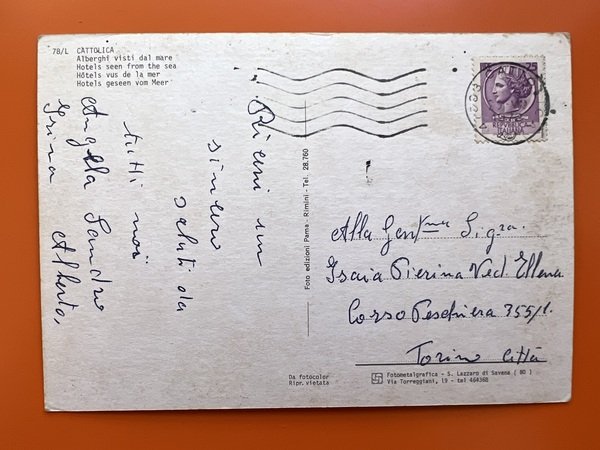 78/L CATTOLICA
Alberghi visti dal mare
Hotels seen from the sea
Hôtels vus de la mer
Hotels geseen vom Meer
un
sincero
saluti da
tutti noi
Angela Sandro
Alberto,
Foto edizioni Parma - Rimini - Tel. 28.760
REPUBBLICA
ITALIANA
Alla Gent.ma Sig.ra
Isaia Pierina Ved. Ellena
Corso Peschiera 355/1.
Torino Città
Da fotocolor
Ripr. vietata
Fotometalgrafica - S. Lazzaro di Savena ( BO )
Via Torreggiani, 19 - tel 464368